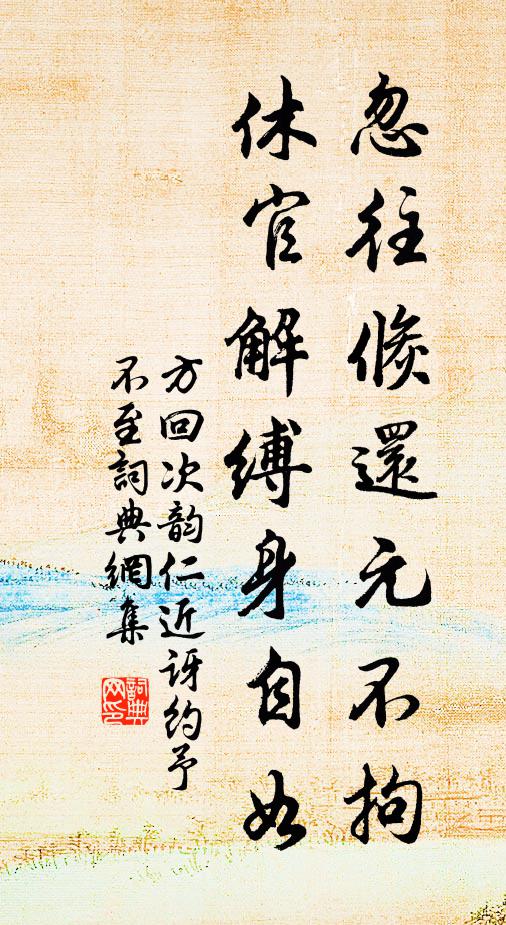 忽往倏還元不拘
休官解縛身自如
方回次韵仁近讶約予
不至詞典網集
詞典
网印